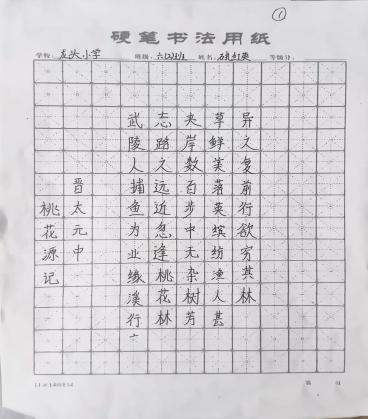 ①
硬笔书法用纸
学校：龙头小学 班级：六(2)班 姓名： 等级分：
桃花源记
晋太元中
武陵人捕鱼为业缘溪行
忘路之远近忽逢桃花林
夹岸数百步中无杂树芳
草鲜美落英缤纷渔人甚
异之复前行欲穷其林
第 页